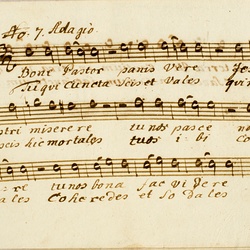 No 7. Adagio.
Bone Pastor panis Vere Je
Tu qui Cuncta Scis et Vales qui n
stri miserere tu nos pasce n
scis hic mortales tuos i bi c
re tu nos bona fac vi dere
ales Cohæredes et So dales